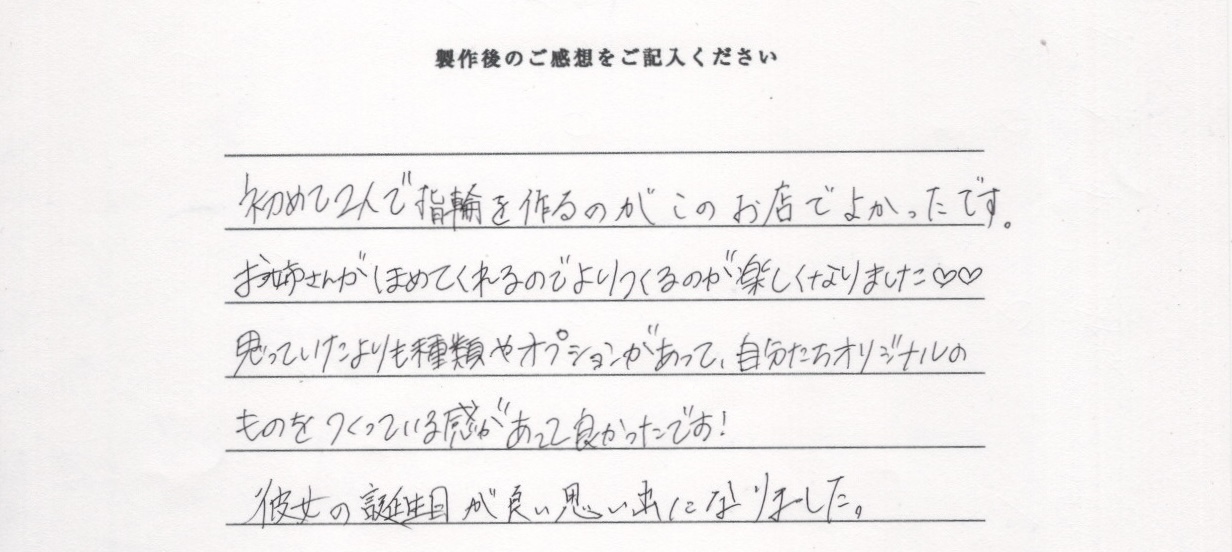 製作後のご感想をご記入ください
初めて2人で指輪を作るのがこのお店でよかったです。
お姉さんがほめてくれるのでよりつくるのが楽しくなりました♡♡
思っていたよりも種類やオプションがあって、自分たちオリジナルの
ものをつくっている感があって良かったです!
彼女の誕生日が良い思い出になりました。